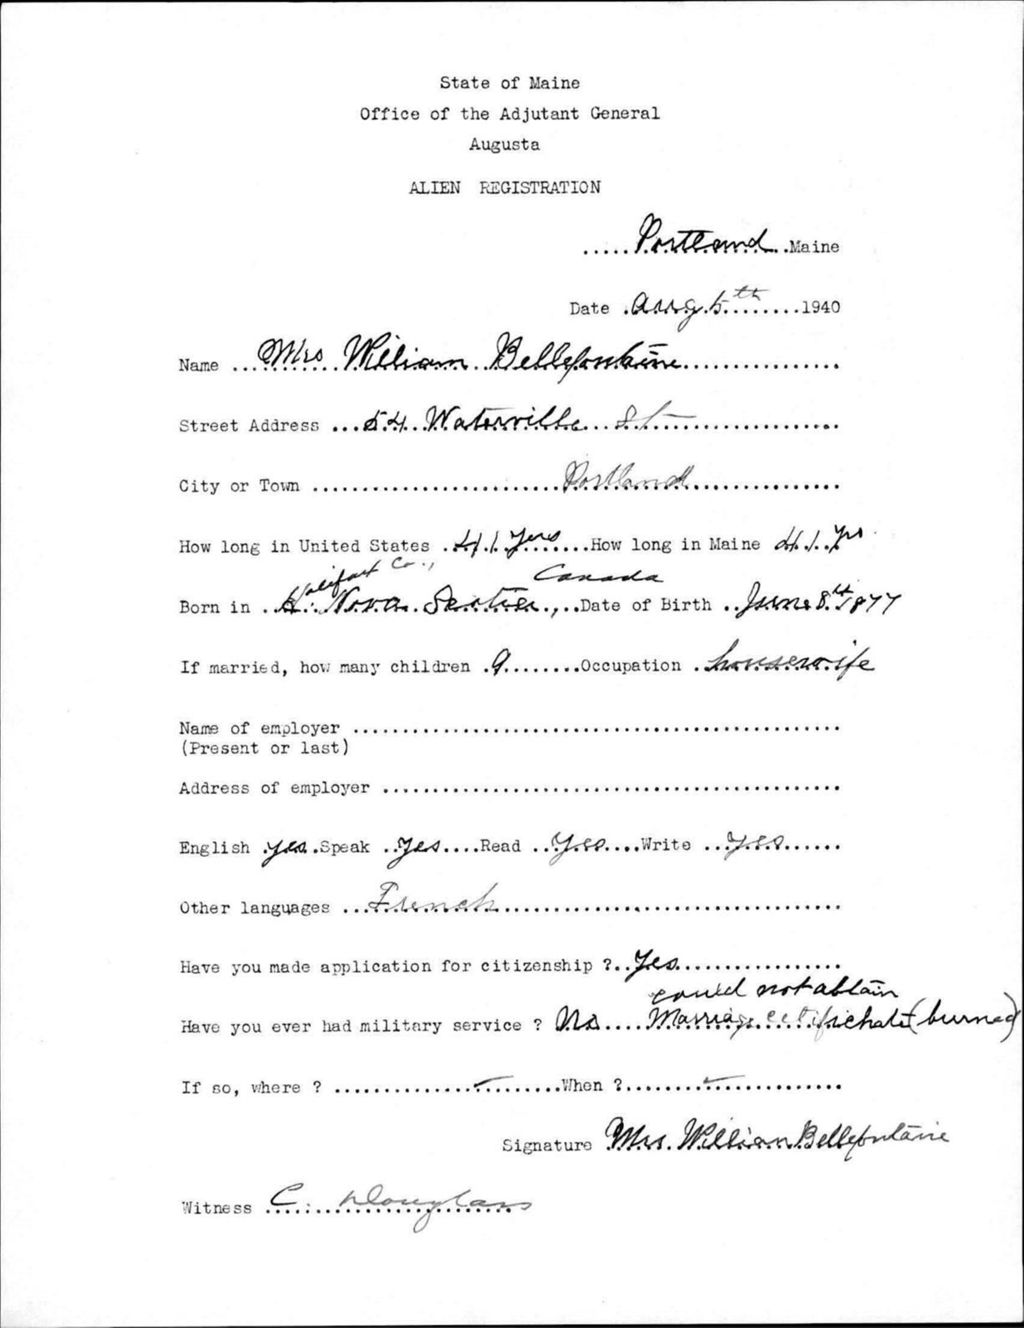 State of Maine
Office of the Adjutant General
Augusta
ALIEN REGISTRATION
.....Portland..Maine
Date .Aug 5th........1940
Name ...Mrs William Bellefontaine................
Street Address ...54 Waterville St.....................
City or Town .........................Portland...............
How long in United States .41 yrs......How long in Maine 41 yrs
Halifax Co., Canada
Born in ..Nova Scotia.,..Date of Birth ..June 8th 1877
If married, how many children .9........Occupation .housewife
Name of employer ................................................
(Present or last)
Address of employer .............................................
English .yes.Speak ..yes....Read ..yes....Write ...yes......
Other languages ...French..................................
Have you made application for citizenship ?..Yes................
could not abtain
Have you ever had military service ? No....Marriage certifichate (burned)
If so, where ? .......................When ?......................
Signature Mrs. William Bellefontaine
Witness C. Douglass